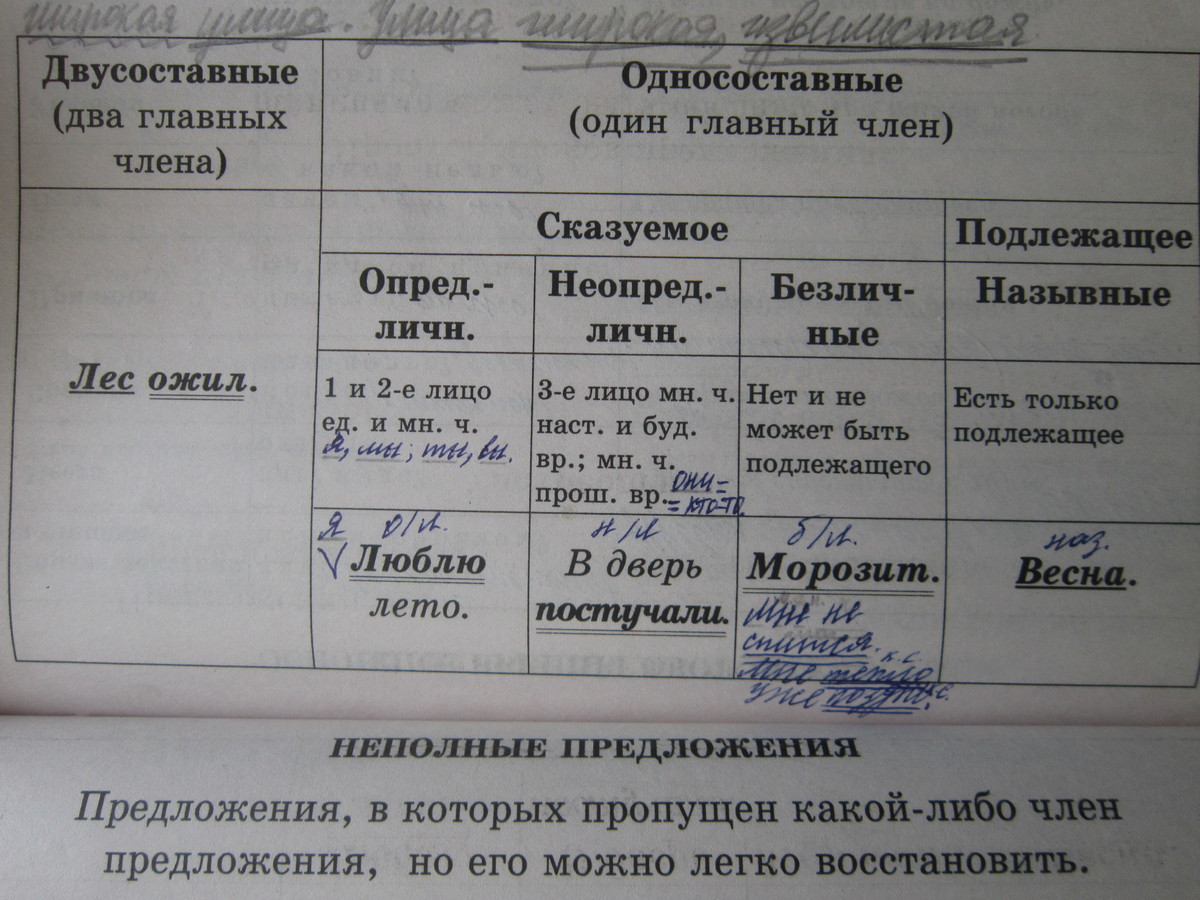 широкая улица. Улица широкая, извилистая
Двусоставные
(два главных
члена)
Односоставные
(один главный член)
Сказуемое
Подлежащее
Опред.-
личн.
Неопред.-
личн.
Безлич-
ные
Назывные
Лес ожил.
1 и 2-е лицо
ед. и мн. ч.
я, мы; ты, вы.
3-е лицо мн. ч.
наст. и буд.
вр.; мн. ч.
прош. вр. они =
= кто-то.
Нет и не
может быть
подлежащего
Есть только
подлежащее
Я о/л.
V Люблю
лето.
н/л
В дверь
постучали.
б/л.
Морозит.
Мне не
спится. к.с.
Мне тепло
Уже поздно. к.с.
наз.
Весна.
НЕПОЛНЫЕ ПРЕДЛОЖЕНИЯ
Предложения, в которых пропущен какой-либо член
предложения, но его можно легко восстановить.